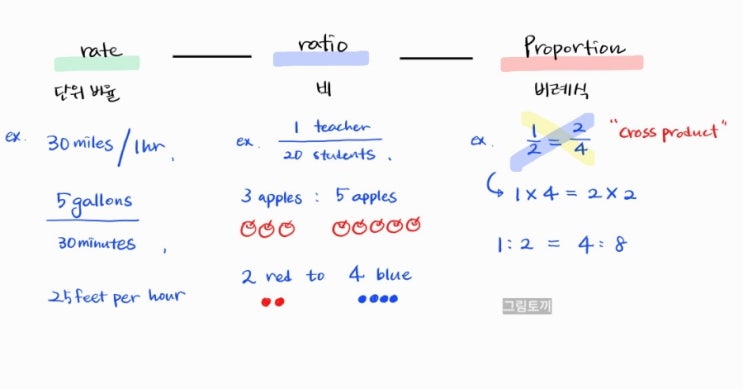 rate — ratio — Proportion
단위 비율 비 비례식
ex. 30 miles / 1hr,
5 gallons / 30 minutes,
25 feet per hour
ex. 1 teacher / 20 students,
3 apples : 5 apples
2 red to 4 blue
ex. 1/2 = 2/4 "cross product"
1 × 4 = 2 × 2
1 : 2 = 4 : 8
그림토끼